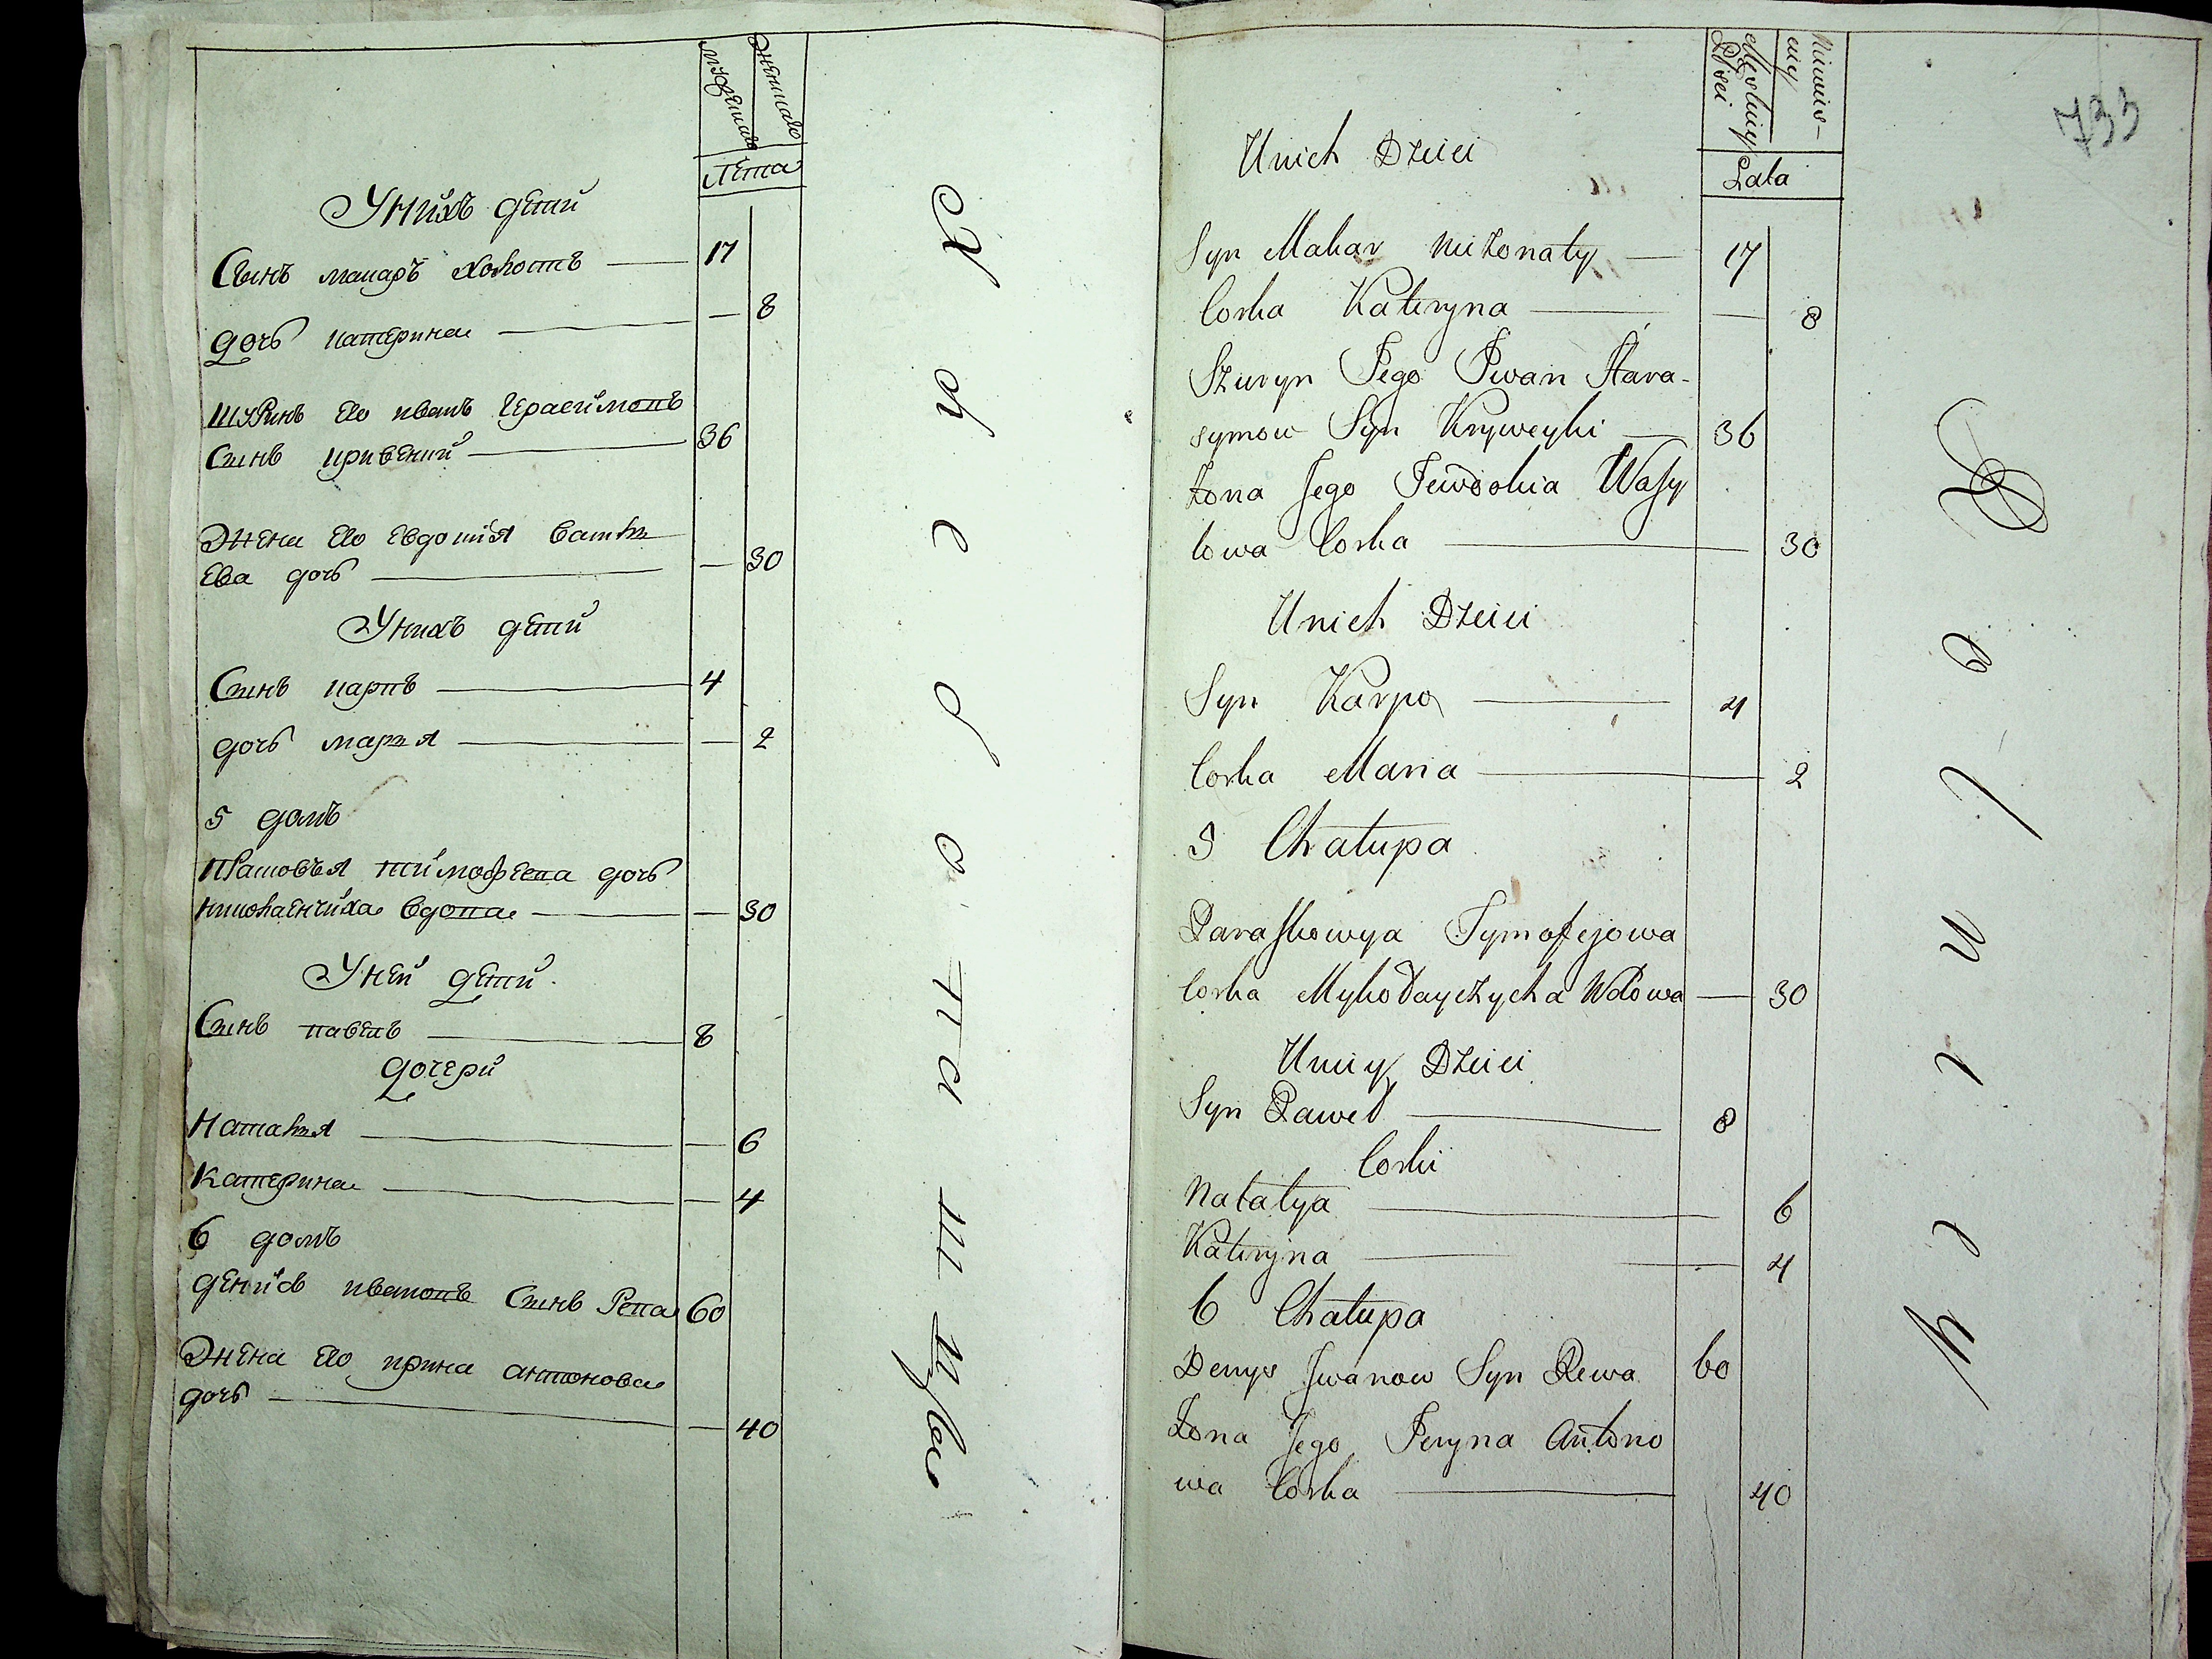 мужеска
женска
Лета
У нихъ дети
Сынъ макаръ холостъ — 17
дочь катерина — — 8
Шуринъ его иванъ Герасимовъ
Сынъ кривенкий — 36
Жена его евдокия василь
ева дочь — — 30
У нихъ дети
Сынъ карпъ — 4
дочь марья — — 2
5 домъ
Прасковья тимофеева дочь
николаенчиха вдова — — 30
У ней дети
Сынъ павелъ — 8
дочери
Наталья — — 6
Катерина — — 4
6 домъ
денисъ ивановъ Сынъ Рева 60
Жена его ирина антонова
дочь — — 40
733
Lata
Unich Dzieci
Syn Makar nieżonaty — 17
Corka Kateryna — — 8
Szuryn Jego Iwan Hara-
symow Syn Kryweyki — 36
Żona Jego Jewdokia Wasy
lowa Corka — 30
Unich Dzieci
Syn Karpo — 4
Corka Maria — 2
5 Chałupa
Paraskowya Tymofejowa
Corka Mykołayczycha Wdowa — 30
Uniey Dzieci
Syn Paweł — 8
Corki
Natalya — 6
Kateryna — — 4
6 Chałupa
Denys Iwanow Syn Rewa 60
Żona Jego Jeryna Antono
wa Corka — 40